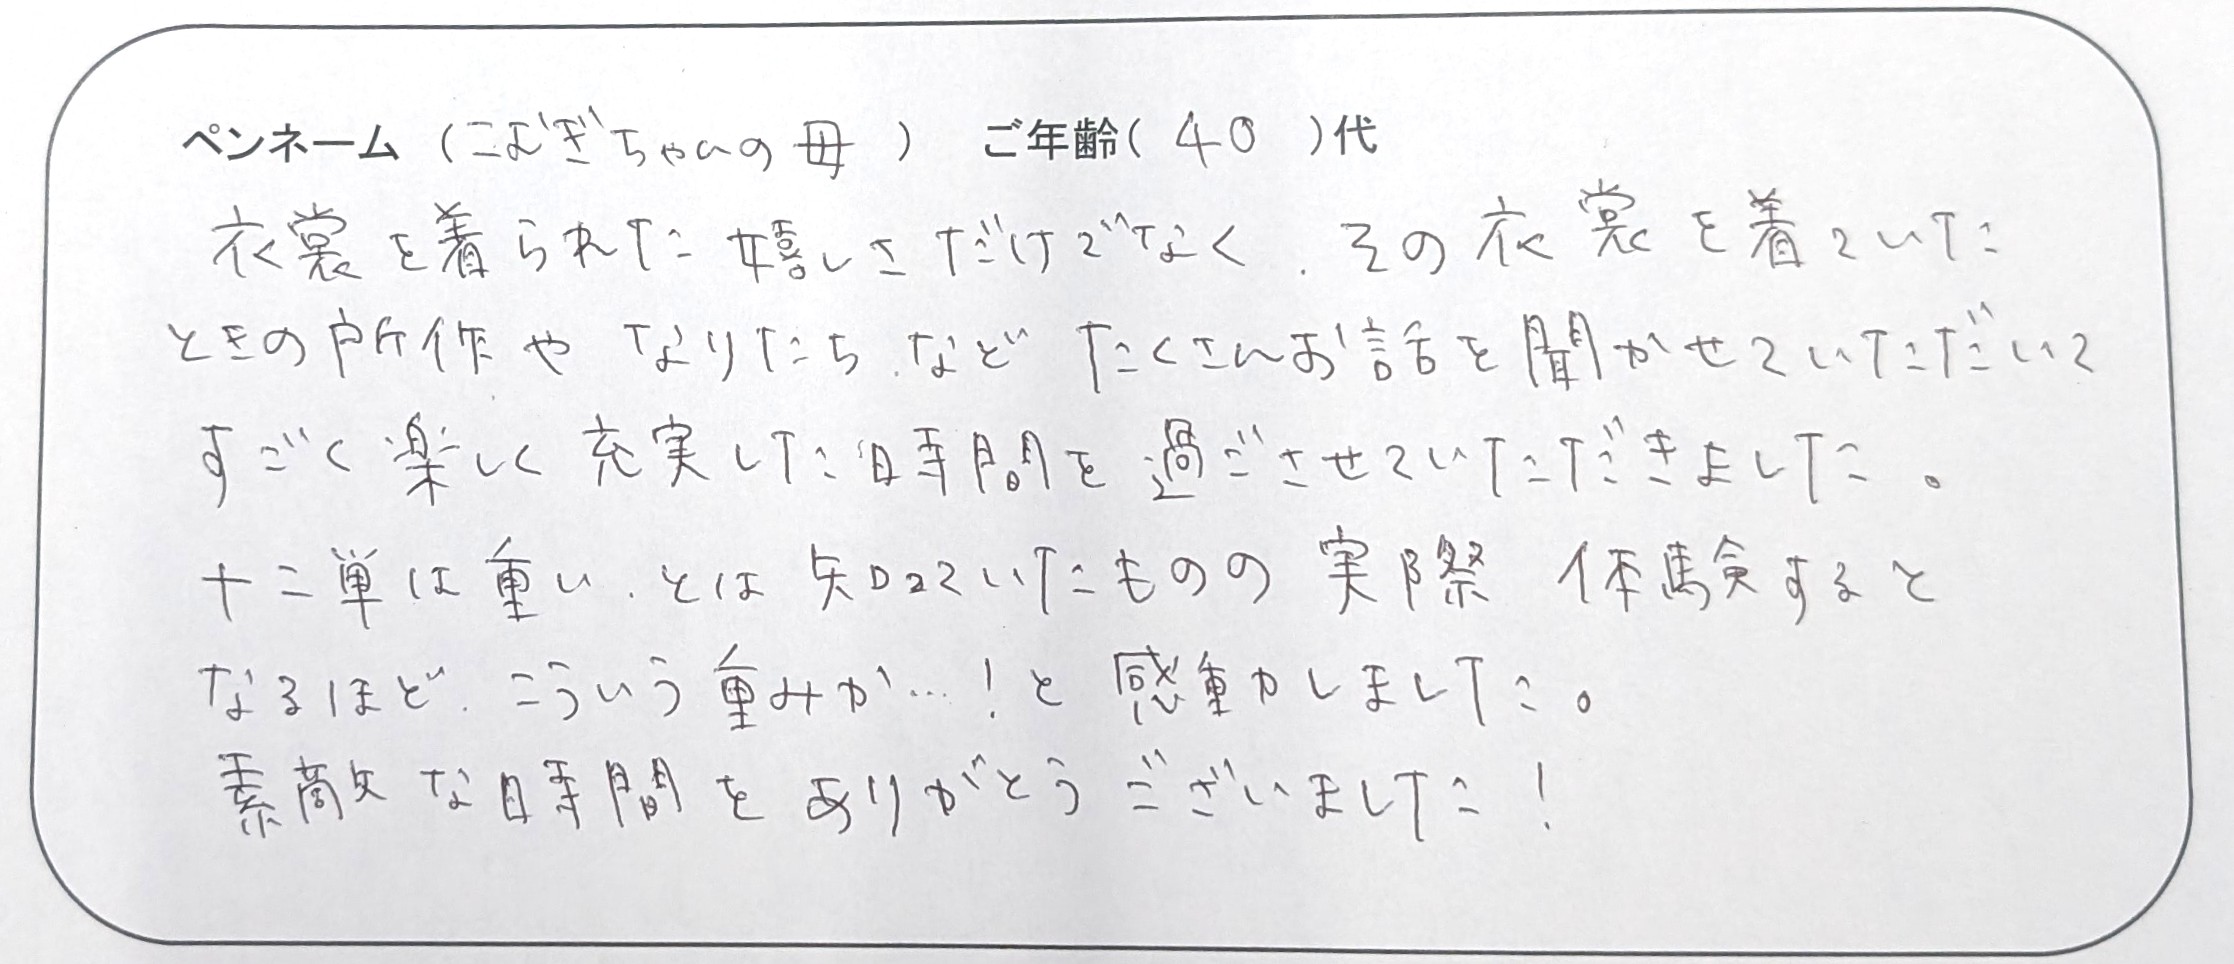 ペンネーム（こむぎちゃんの母）　ご年齢（40）代
衣裳を着られた嬉しさだけでなく、その衣裳を着ていた
ときの所作やなりたち、などたくさんお話を聞かせていただいて
すごく楽しく充実した時間を過ごさせていただきました。
十二単は重い、とは知っていたものの実際体験すると
なるほど、こういう重みか…！と感動しました。
素敵な時間をありがとうございました！